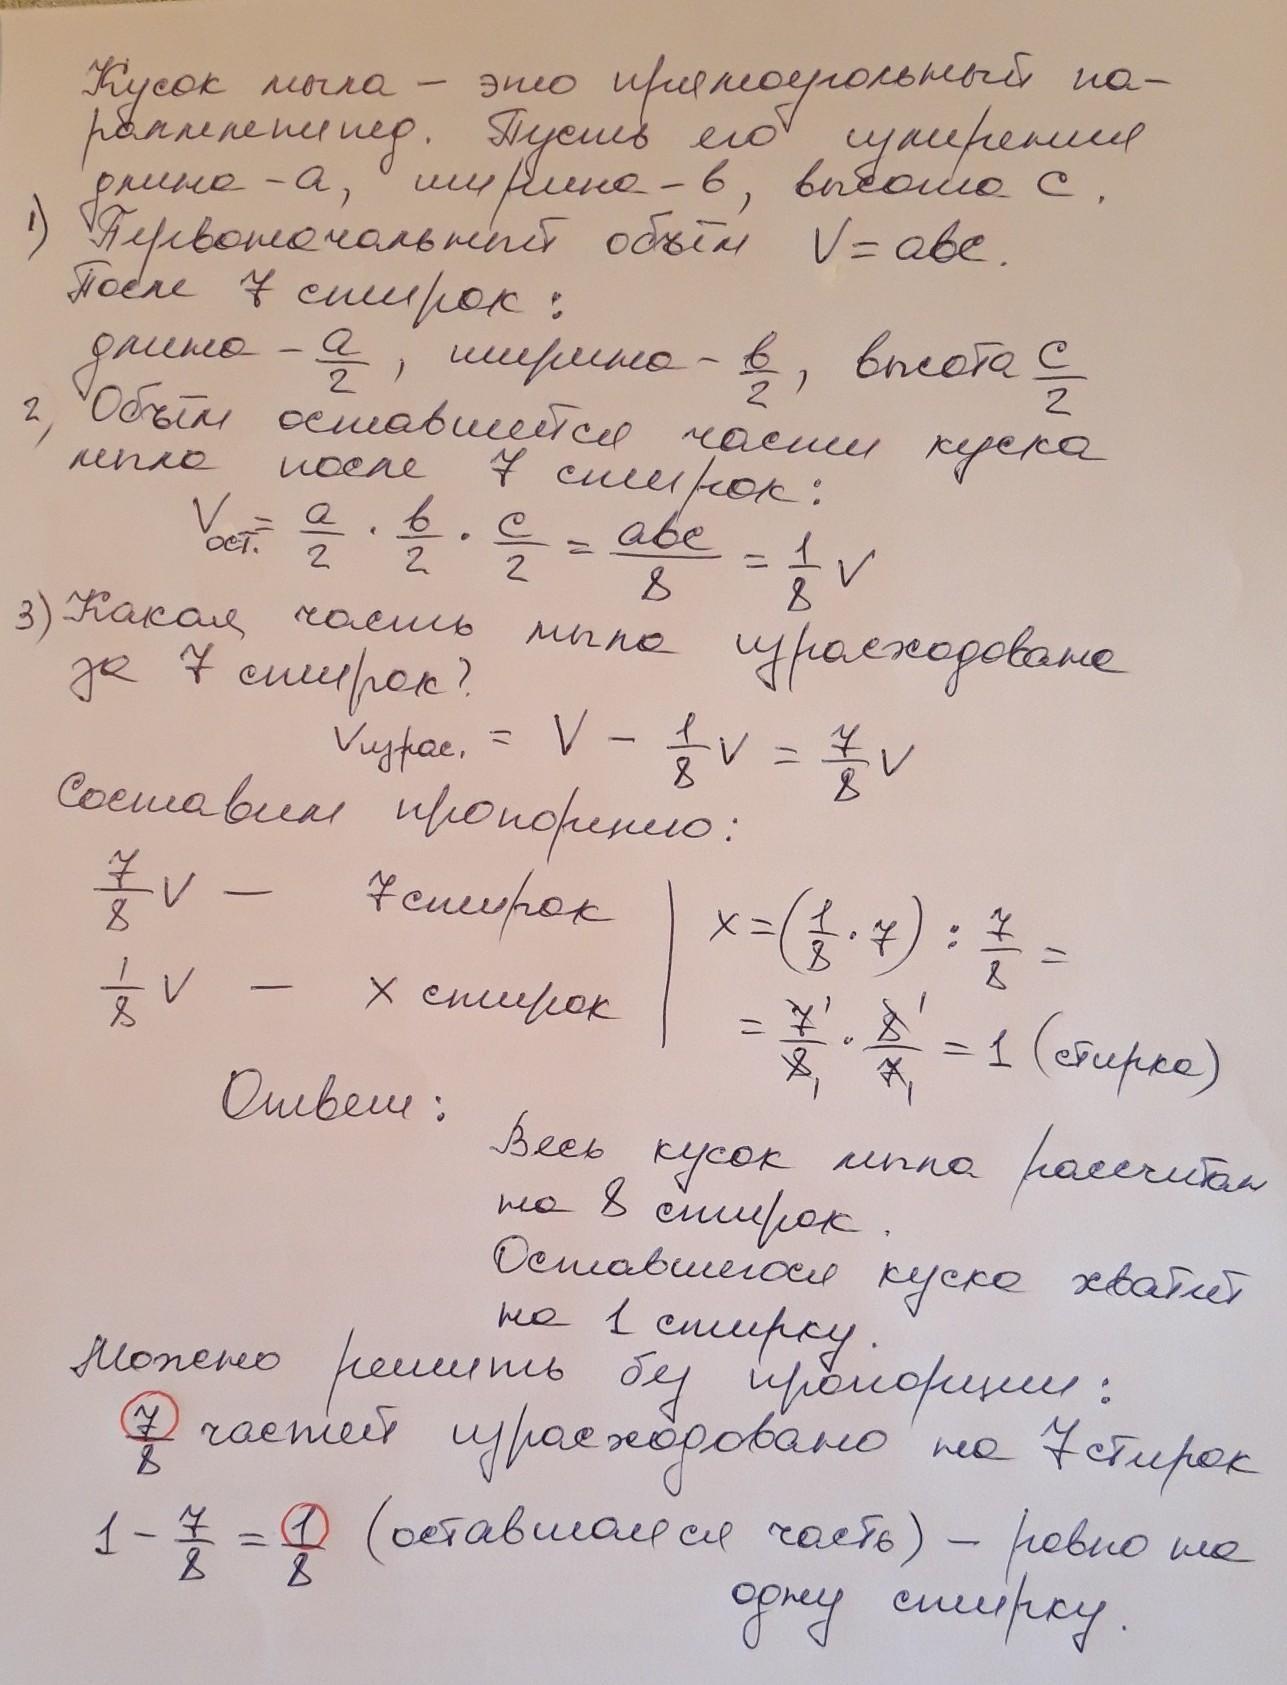 Кусок мыла – это прямоугольный па-
раллелепипед. Пусть его измерения
длина – a, ширина – в, высота c.
1) Первоначальный объём V = aвc.
После 7 стирок:
длина – a/2, ширина – в/2, высота c/2
2) Объём оставшейся части куска
мыла после 7 стирок:
Vост. = a/2 · в/2 · c/2 = aвc/8 = 1/8 V
3) Какая часть мыла израсходована
за 7 стирок?
Vизрас. = V – 1/8 V = 7/8 V
Составим пропорцию:
7/8 V — 7 стирок | x = (1/8 · 7) : 7/8 =
1/8 V — x стирок | = 7/8 · 8/7 = 1 (стирка)
Ответ:
Весь кусок мыла рассчитан
на 8 стирок.
Оставшегося куска хватит
на 1 стирку.
Можно решить без пропорции:
7/8 частей израсходовано на 7 стирок
1 – 7/8 = 1/8 (оставшаяся часть) – ровно на
одну стирку.